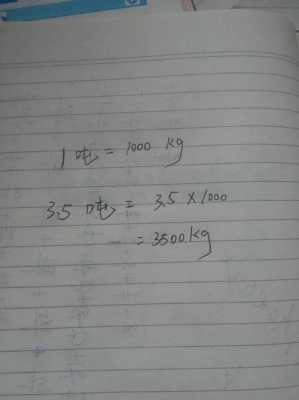 1吨 = 1000 kg
3.5 吨 = 3.5 × 1000
= 3500kg